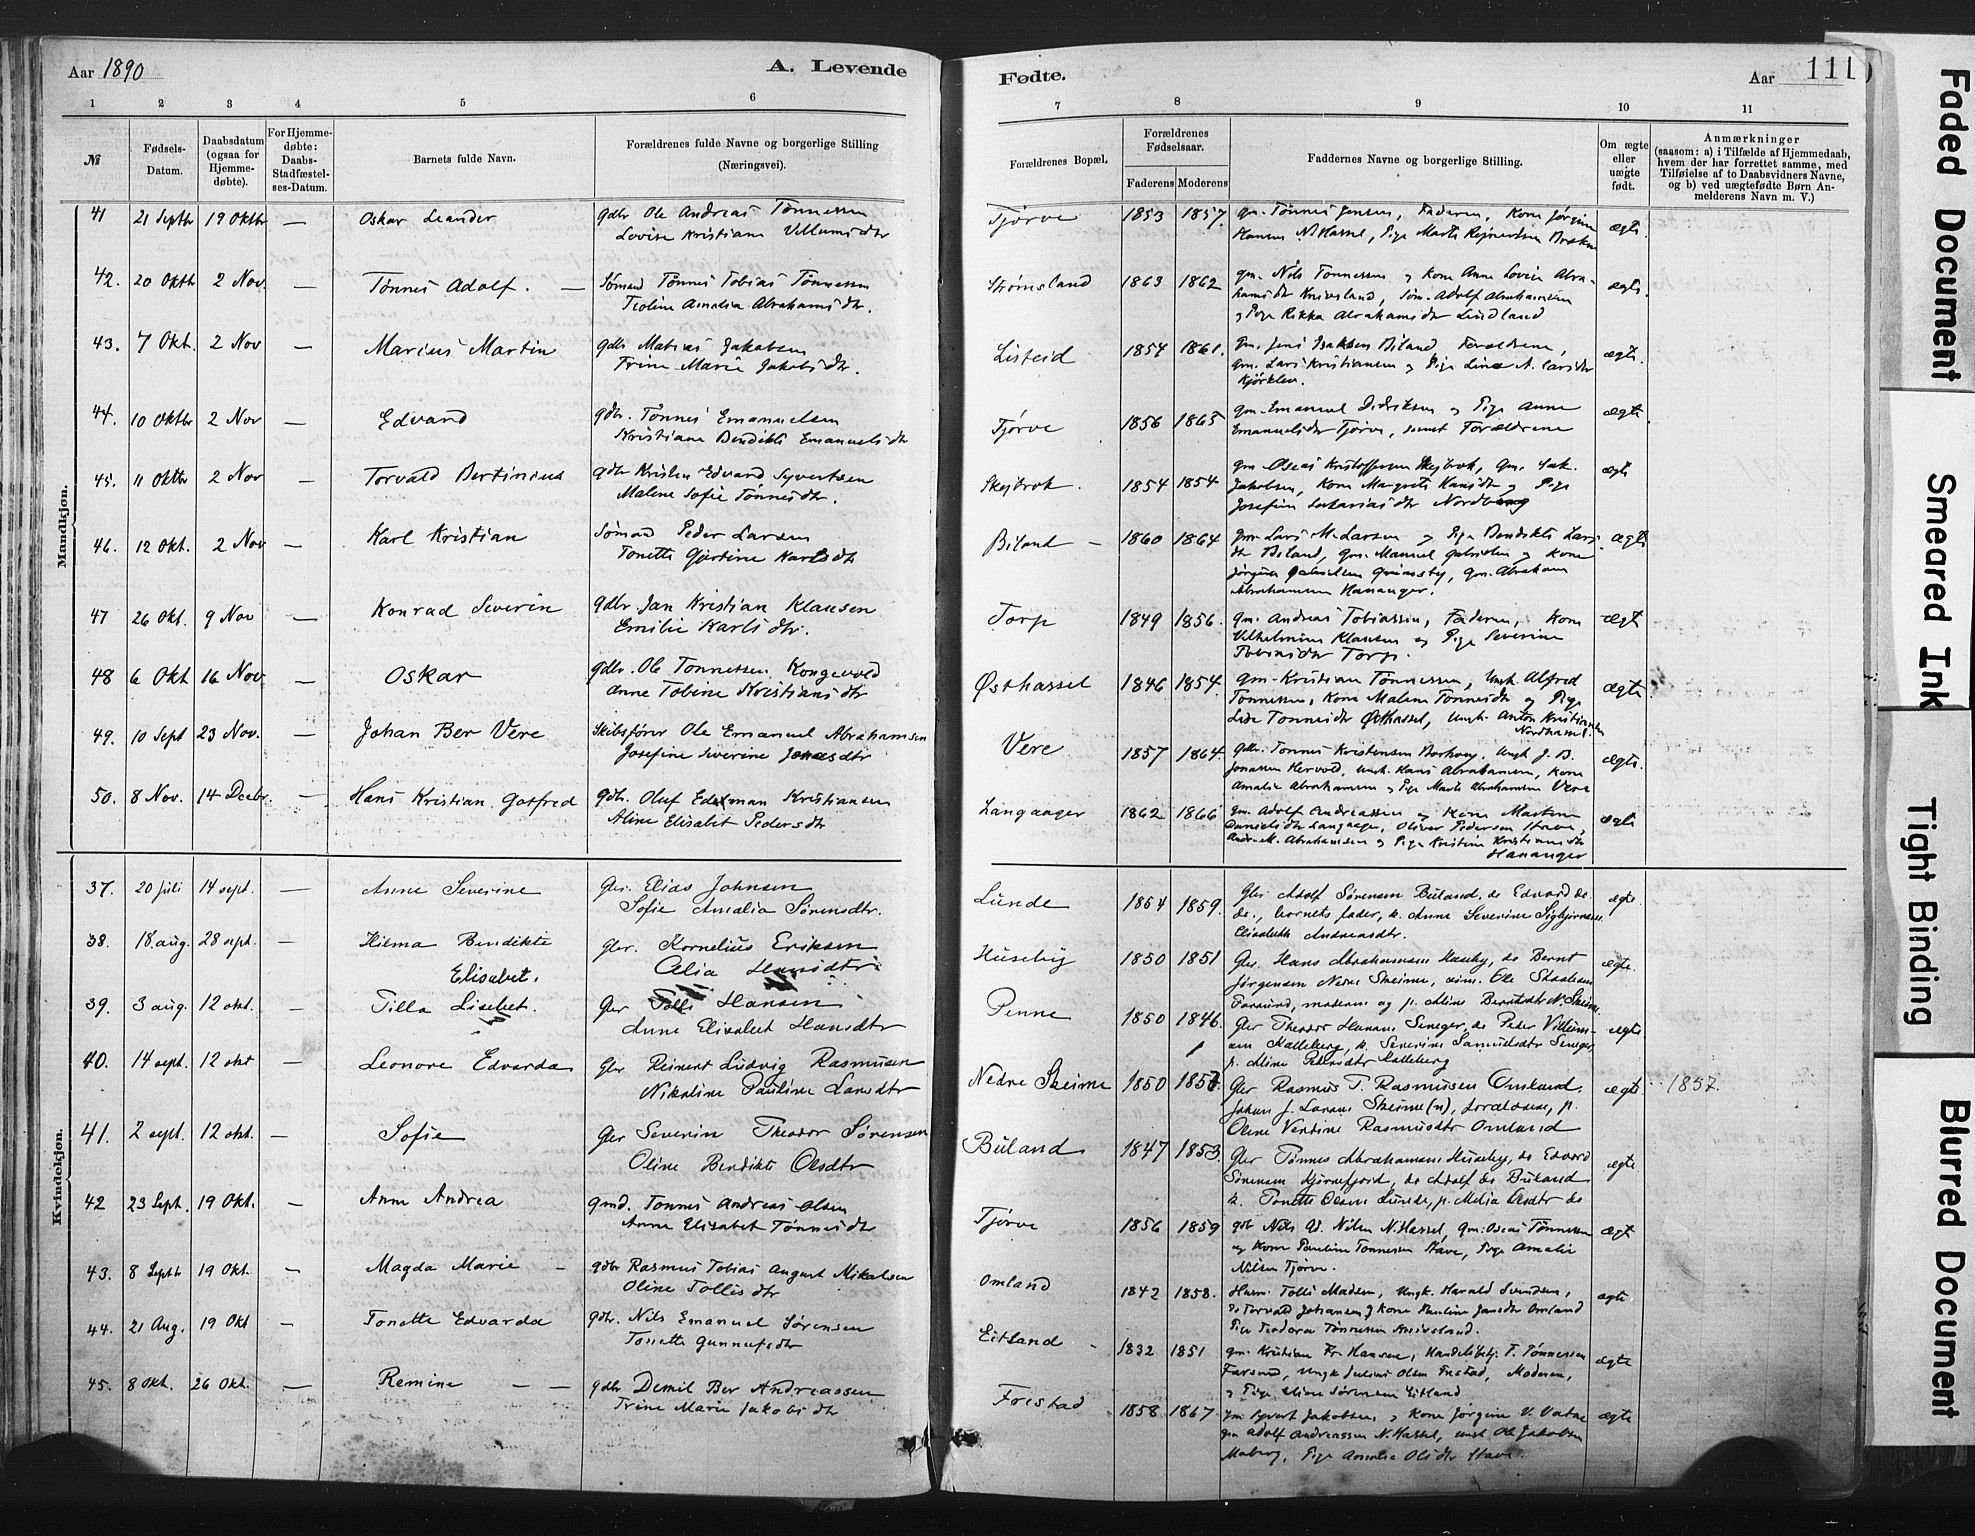 Aar 1890
A. Levende
Fødte.
Aar
111
1 2 3 4 5 6 7 8 9 10 11
№
Fødsels-Datum.
Daabsdatum (ogsaa for Hjemmedøbte).
For Hjemmedøbte: Daabs-Stadfæstelses-Datum.
Barnets fulde Navn.
Forældrenes fulde Navne og borgerlige Stilling (Næringsvei).
Forældrenes Bopæl.
Forældrenes Fødselsaar.
Faderens Moderens
Faddernes Navne og borgerlige Stilling.
Om ægte eller uægte født.
Anmærkninger
(saasom: a) i Tilfælde af Hjemmedaab, hvem der har forrettet samme, med Tilføielse af to Daabsvidners Navne, og b) ved uægtefødte Børn Anmelderens Navn m. V.)
Mandkjøn.
41 21 Septbr 19 Oktbr — Oskar Leander
gdbr Ole Andreas Tønnessen
Lovise Kristiane Villumsdtr
Tjørve 1853 1857.
gm. Tønnes Jensen, Faderen, Kone Jørgine
Hansen N. Hassel, Pige
ægte.
42. 20 Oktbr 2 Nov. — Tønnes Adolf. —
Sømand Tønnes Tobias Tønnessen
Teoline Amalia Abrahamsdtr.
Strømsland 1863 1862
gm. Nils Tønnessen og Kone Anne Lovise Abrahamsdtr
Knivsland, Søm. Adolf Abrahamsen
og Pige Rikka Abrahamsdtr Lindland
ægte.
43. 7 Okt. 2 Nov — Marius Martin
gdbr Matias Jakobsen
Trine Marie Jakobsdtr.
Listeid 1854 1861.
gm. Jens Isaksen Biland Forældrene,
gm. Lars Kristiansen og Pige Line A. Larsdtr
ægte.
44. 10 Oktbr 2 Nov — Edvard
gdbr. Tønnes Emanuelsen
Kristiane Bendikte Emanuelsdtr
Tjørve 1856 1865
gm. Emanuel Didriksen og Pige Anne
Emanuelsdtr Tjørve, samt Forældrene
ægte
45. 11 Oktbr 2 Nov — Torvald Bertinius
gdbr Kristen Edvard Syvertsen
Malene Sofie Tønnesdtr.
Skejbrok. 1854 1854
gm Oseas Kristoffersen Skejbrok, gm. Sak.
Jakobsen, Kone Margrete Hansdtr og Pige
Josefine Sakariasdtr Nordberg
ægte
46. 12 Okt. 2 Nov — Karl Kristian
Sømand Peder Larsen
Tonette Gjertine Karlsdtr
Biland — 1860 1864
gm. Lars M. Larsen og Pige Bendikte Larsdtr
Biland, gm. Manuel Gabrielsen og Kone
Jørgine Gabrielsen Grimsby, gm. Abraham
Abrahamsen Hananger.
ægte
47 26 Okt. 9 Nov — Konrad Severin
gdbr Jan Kristian Klausen
Emilie Karlsdtr.
Torp 1849 1856.
gm. Andreas Tobiassen, Faderen, Kone
Vilhelmine Klausen og Pige Severine
Tobiasdtr Torp.
ægt
48 6 Okt 16 Nov — Oskar
gdbr. Ole Tønnessen Kongevold
Anne Tobine Kristiansdtr
Østhassel 1846 1854.
gm. Kristian Tønnessen, Ungk. Alfred
Tønnessen, Kone Malene Tønnesdtr og Pige
Lise Tønnesdtr Østhassel, Ungk. Anton Kristiansen
ægte
49. 10 Sept 23 Nov. — Johan Ber Vere
Skibsfører Ole Emanuel Abrahamsen
Josefine Severine Jonasdtr
Vere 1857 1864.
gdbr. Tønnes Kristensen Borhaug, Ungk. J. B.
Jonassen Hervold, Ungk. Hans Abrahamsen, Kone
Amalie Abrahamsen og Pige Marte Abrahamsen Vere
ægte.
50. 8 Nov. 14 Decbr. — Hans Kristian Gotfred
gdbr. Oluf Edelman Kristiansen
Aline Elisabet Pedersdtr
Langaager 1862 1866
gm. Adolf Andreassen og Kone Martine
Danielsdtr Langaager, Oliver Pedersen Stave,
Andr. M. Abrahamsen og Pige Kristine Kristiansdtr
Hananger
ægte
Kvindekjøn.
37. 20 juli 14 sept. — Anne Severine
Gbr. Elias Johnsen
Sofie Amalia Sørensdtr.
Lunde 1854 1859.
Gbr Adolf Sørensen Büland, do Edvard do
do., barnets fader, k. Anne Severine Sigbjørnsen
Elisabeth Andreasdtr.
ægte
38. 18. aug. 28 sept. — Hilma Bendikte
Elisabet.
Gbr. Kornelius Eriksen
Celia Hansdtr
Huseby 1850 1851
Gbr. Hans Abrahamsen Huseby, do Bernt
Jørgensen Nedre Skeime, søm. Ole
Farsund, moderen og p. Aline Berntsdtr N. Skeime
ægte.
39. 3 aug. 12 okt. — Tilla Lisebet.
Gbr Tolli Hansen
Anne Elisabet Hansdtr
Penne 1850 1846.
Gbr Theodor Hansen Seneger, do Peter Vilhelmsen
Kalleberg, k. Severine Samuelsdtr Seneger,
p. Aline Petersdtr Kalleberg
ægte
40. 14 sept. 12 okt — Leonore Edvarda
Gbr Reinert Ludvig Rasmusen
Nikoline Pauline Larsdtr
Nedre Skeime 1850 1857
Gbr Rasmus T. Rasmusen Omland,
Johan J. Larsen Skeime (n), forældrene, p.
Oline Ventine Rasmusdtr Omland
ægte 1857.
41. 2 sept. 12 okt. — Sofie
Gbr Severin Theodor Sørensen
Oline Bendikte Olsdtr
Büland 1847 1853
Gbr Tønnes Abrahamsen Huseby, do Edvard
Sørensen Kjørrefjord, do Adolf do Büland
k. Tonette Olsen Lunde, p. Melia Olsdtr do
ægte
42 23 Sept. 19 Okt. — Anne Andrea
gmd. Tønnes Andreas Olsen
Anne Elisabet Tønnesdtr
Tjørve 1856 1859
gdb Nils Ad. Nilsen N. Hassel, gm. Oseas Tønnessen
og Kone Pauline Tønnessen Stave, Pige Amalie
Nilsen Tjørve.
ægt
43. 8 Septbr 19 Okt. — Magda Marie —
gdbr Rasmus Tobias August Mikalsen
Oline Tollisdtr
Omland 1842 1858.
Husm. Tolli Madsen, Ungk. Harald Svendsen,
do Torvald Johansen og Kone Pauline Jansdtr Omland
Pige Teodora Tønnessen Knivsland.
ægte.
44. 21 Aug. 19 Okt — Tonette Edvarda
gdbr. Nils Emanuel Sørensen
Tonette Gunnufsdtr
Eitland 1832 1851
gm. Kristian Fr. Hansen, Handelsbetj. T. Tønnessen
Farsund, Ungk Julius Olsen Frestad, Moderen,
og Pige Aline Sørensen Eitland
ægte
45. 8 Okt. 26 Okt. — Remine — —
gdbr Demil Ber Andreassen
Trine Marie Jakobsdtr
Frestad 1858 1867
gm Syvert Jakobsen og Kone Jørgine V. Vatne
gm Adolf Andreassen N. Hassel, Ungk Ole Jakobsen
Maberg, Pige Amalie Olsdtr Stave.
ægte
Faded Document
Smeared Ink
Tight Binding
Blurred Document